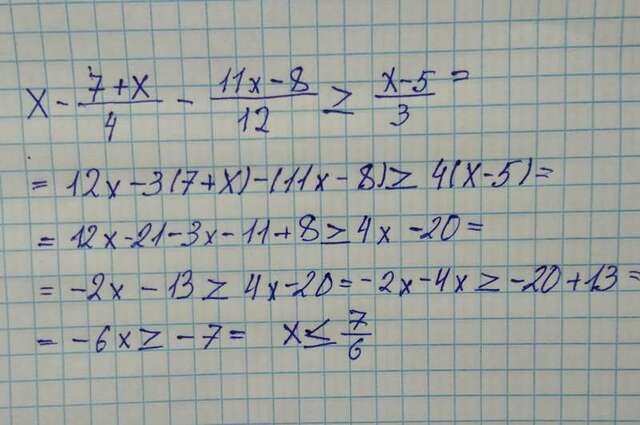 x - (7+x)/4 - (11x-8)/12 ≥ (x-5)/3 =
= 12x-3(7+x)-(11x-8)≥ 4(x-5)=
= 12x-21-3x-11+8≥4x-20=
= -2x-13≥4x-20=-2x-4x≥-20+13=
= -6x≥-7= x≤7/6